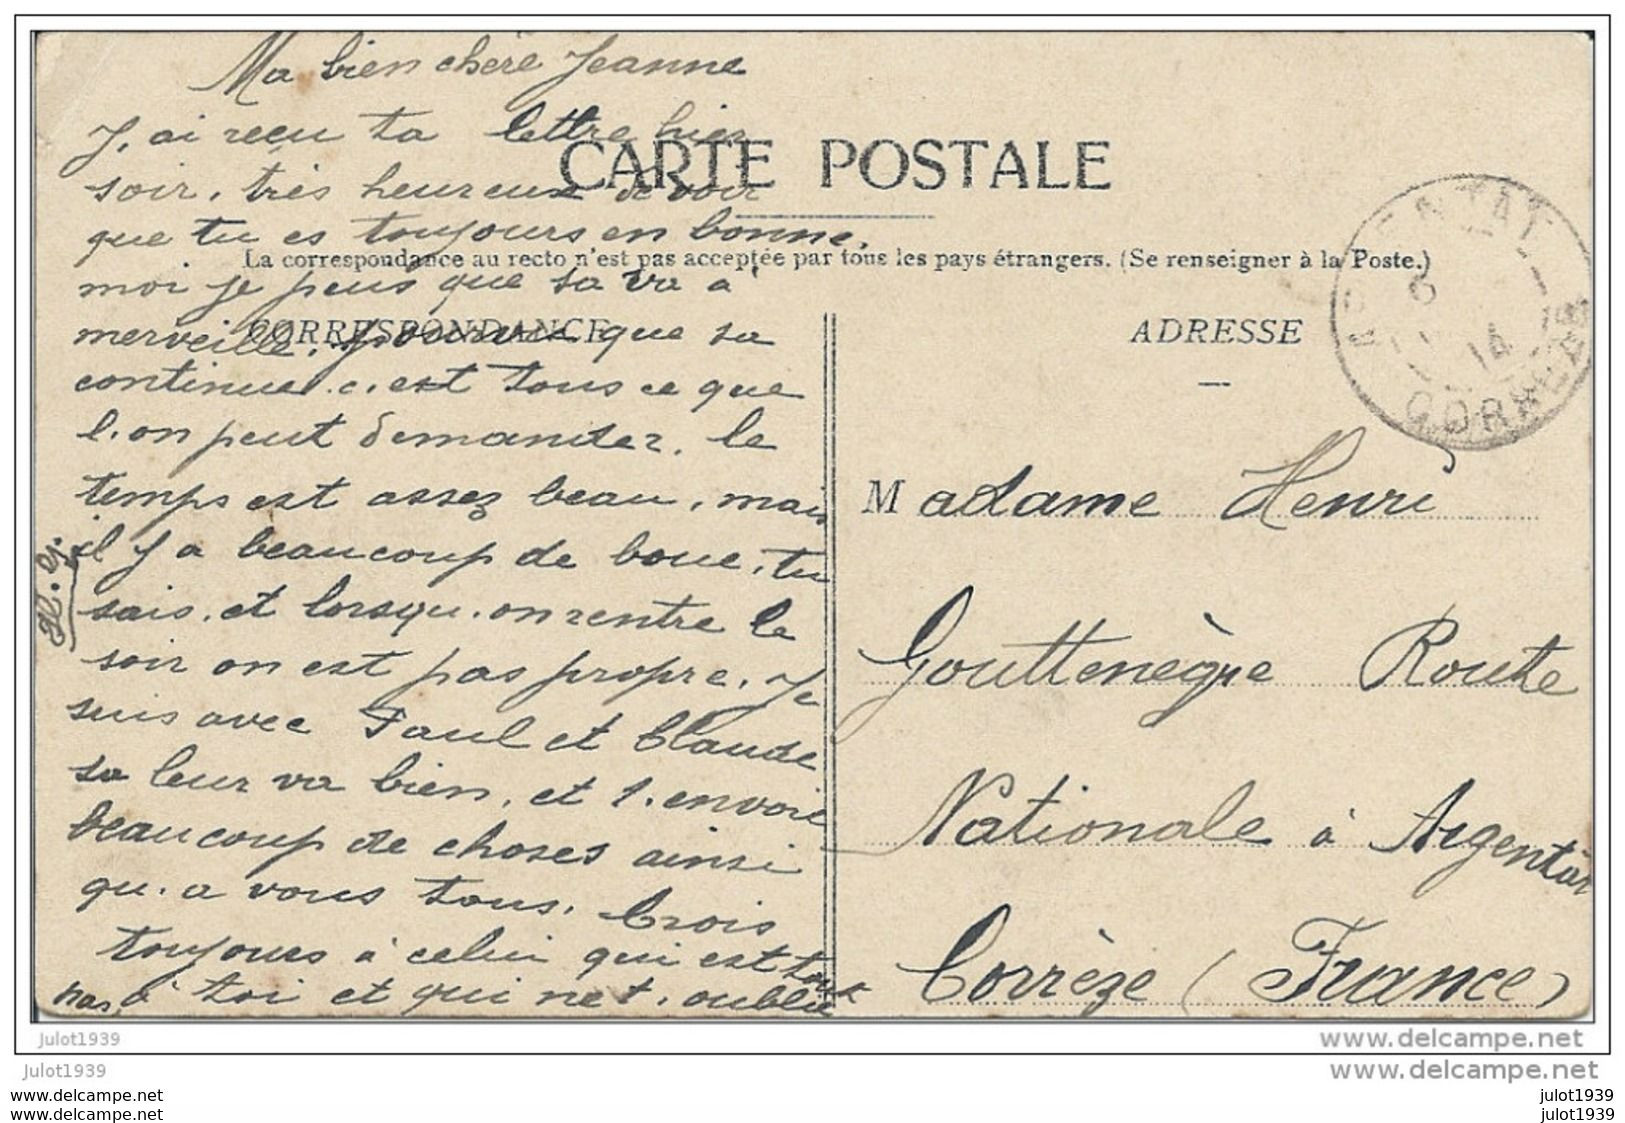 Ma bien chère Jeanne
J. ai reçu ta lettre hier
soir. très heureux de voir
que tu es toujours en bonne.
moi je peus que sa va a
merveille. pourvu que sa
continue. c. est tous ce que
l. on peut demander. le
temps est assez beau. mais
il y a beaucoup de boue. tu
sais. et lorsqu. on rentre le
soir on est pas propre. Je
suis avec Paul et Claude
sa leur va bien. et t. envoie
beaucoup de choses ainsi
qu. a vous tous. Crois
toujours à celui qui est tout
à toi et qui ne t. oublie
pas.
H. G.
CARTE POSTALE
La correspondance au recto n'est pas acceptée par tous les pays étrangers. (Se renseigner à la Poste.)
CORRESPONDANCE
ADRESSE
ARGENTAT
6
14
CORRÈZE
Madame Henri
Gouttenègre Route
Nationale à Argentat
Corrèze (France)
julot1939
www.delcampe.net
julot1939
www.delcampe.net
julot1939
julot1939
julot1939
julot1939